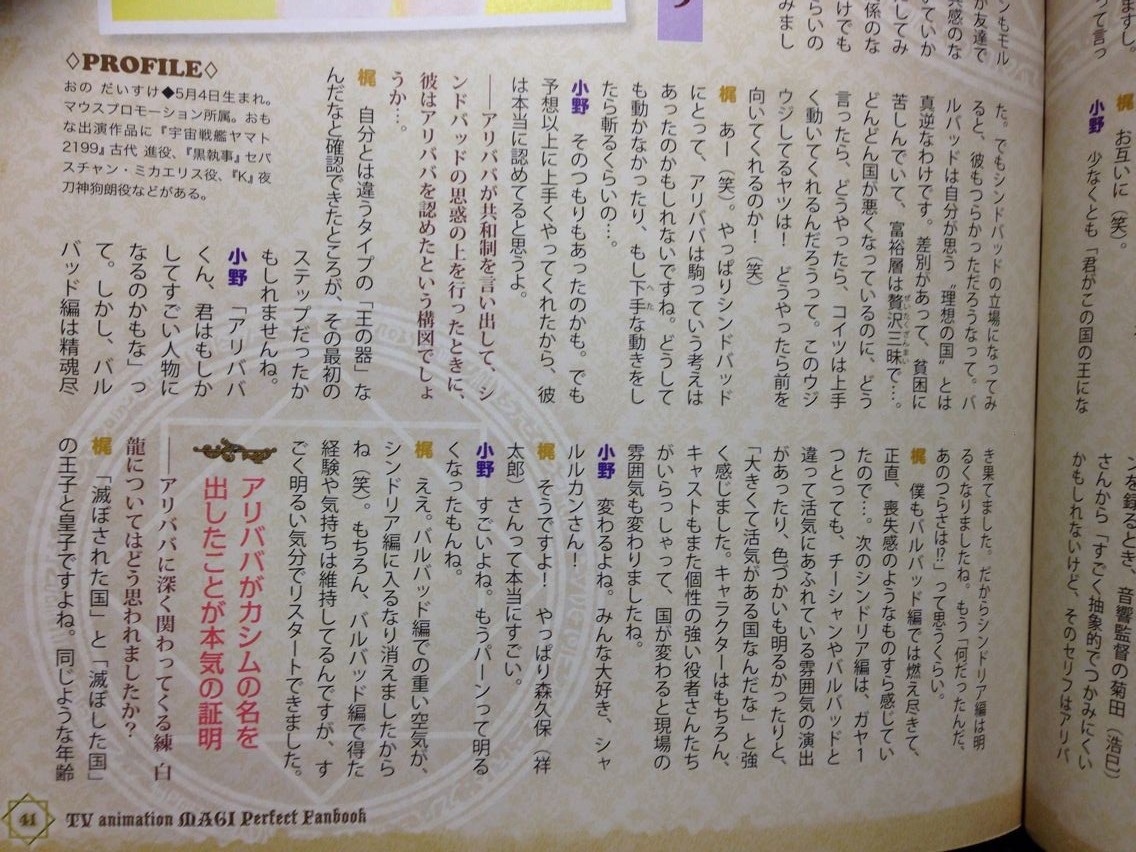 ますし。
って言っ
梶　お互いに（笑）。
小野　少なくとも「君がこの国の王にな
ンを録るとき、音響監督の菊田（浩巳）
さんから「すごく抽象的でつかみにくい
かもしれないけど、そのセリフはアリバ
ンもモル
が友達で
共感のな
ていか
してみ
けでも
係のな
らいの
みまし
た。でもシンドバッドの立場になってみ
ると、彼もつらかっただろうなって。バ
ルバッドは自分が思う〝理想の国〟とは
真逆なわけです。差別があって、貧困に
苦しんでいて、富裕層は贅沢三昧で…。
どんどん国が悪くなっているのに、どう
言ったら、どうやったら、コイツは上手
く動いてくれるんだろうって。このウジ
ウジしてるヤツは！　どうやったら前を
向いてくれるのか！（笑）
梶　あー（笑）。やっぱりシンドバッド
にとって、アリババは駒っていう考えは
あったのかもしれないですね。どうして
も動かなかったり、もし下手な動きをし
たら斬るくらいの…。
小野　そのつもりもあったのかも。でも
予想以上に上手くやってくれたから、彼
は本当に認めてると思うよ。
――アリババが共和制を言い出して、シ
ンドバッドの思惑の上を行ったときに、
彼はアリババを認めたという構図でしょ
うか…。
梶　自分とは違うタイプの「王の器」な
んだなと確認できたところが、その最初の
ステップだったか
もしれませんね。
小野　「アリババ
くん、君はもしか
してすごい人物に
なるのかもな」っ
て。しかし、バル
バッド編は精魂尽
き果てました。だからシンドリア編は明
るくなりましたね。もう「何だったんだ、
あのつらさは!?」って思うくらい。
梶　僕もバルバッド編では燃え尽きて、
正直、喪失感のようなものすら感じてい
たので…。次のシンドリア編は、ガヤ一
つとっても、チーシャンやバルバッドと
違って活気にあふれている雰囲気の演出
があったり、色づかいも明るかったりと、
「大きくて活気がある国なんだな」と強
く感じました。キャラクターはもちろん、
キャストもまた個性の強い役者さんたち
がいらっしゃって、国が変わると現場の
雰囲気も変わりましたね。
小野　変わるよね。みんな大好き、シャ
ルルカンさん！
梶　そうですよ！　やっぱり森久保（祥
太郎）さんって本当にすごい。
小野　すごいよね。もうパーンって明る
くなったもんね。
梶　ええ。バルバッド編での重い空気が、
シンドリア編に入るなり消えましたから
ね（笑）。もちろん、バルバッド編で得た
経験や気持ちは維持してるんですが、す
ごく明るい気分でリスタートできました。
アリババがカシムの名を
出したことが本気の証明
――アリババに深く関わってくる練 白
龍についてはどう思われましたか？
梶　「滅ぼされた国」と「滅ぼした国」
の王子と皇子ですよね。同じような年齢
◇PROFILE◇
おの だいすけ◆5月4日生まれ。
マウスプロモーション所属。おも
な出演作品に『宇宙戦艦ヤマト
2199』古代 進役、『黒執事』セバ
スチャン・ミカエリス役、『K』夜
刀神狗朗役などがある。
41 TV animation MAGI Perfect Fanbook